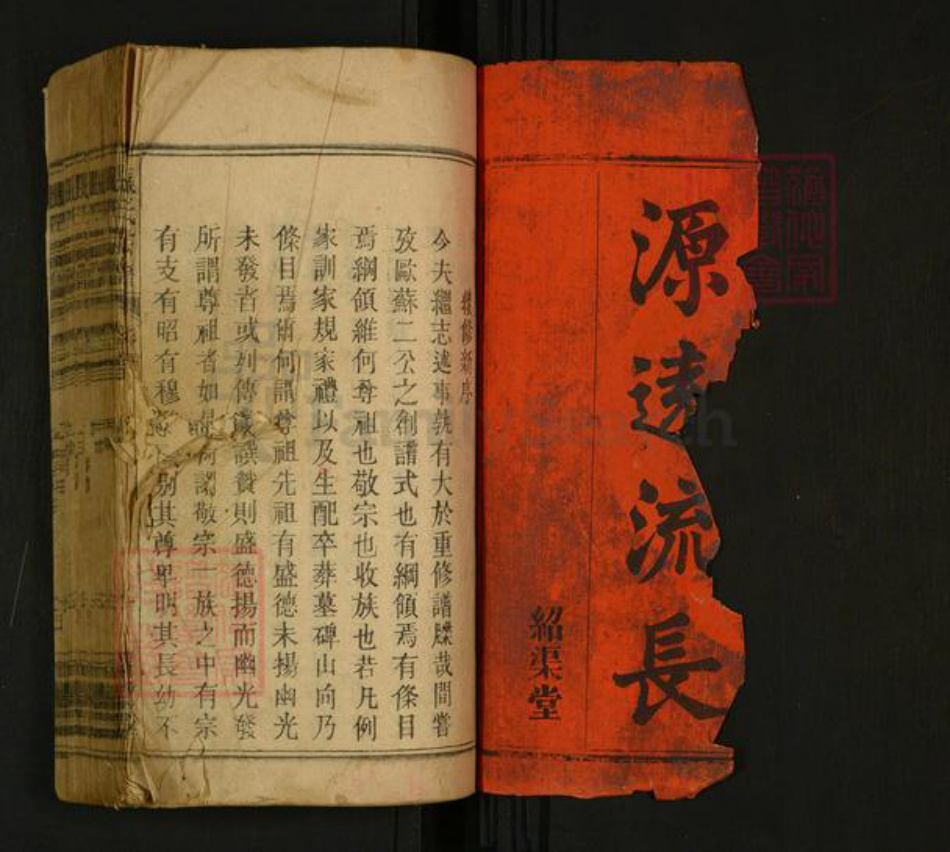 源遠流長
紹渠堂
續修新序
今夫繼志述事孰有大於重修譜牒哉間嘗
攷歐蘇二公之創譜式也有綱領焉有條目
焉綱領維何尊祖也敬宗也收族也若凡例
家訓家規家禮以及生配卒葬墓碑山向乃
條目焉術何謂尊祖先祖有盛德未揚幽光
未發者或列傳或譔贊則盛德揚而幽光發
所謂尊祖者如是何謂敬宗一族之中有宗
有支有昭有穆 別其尊卑明其長幼不
FamilySearch